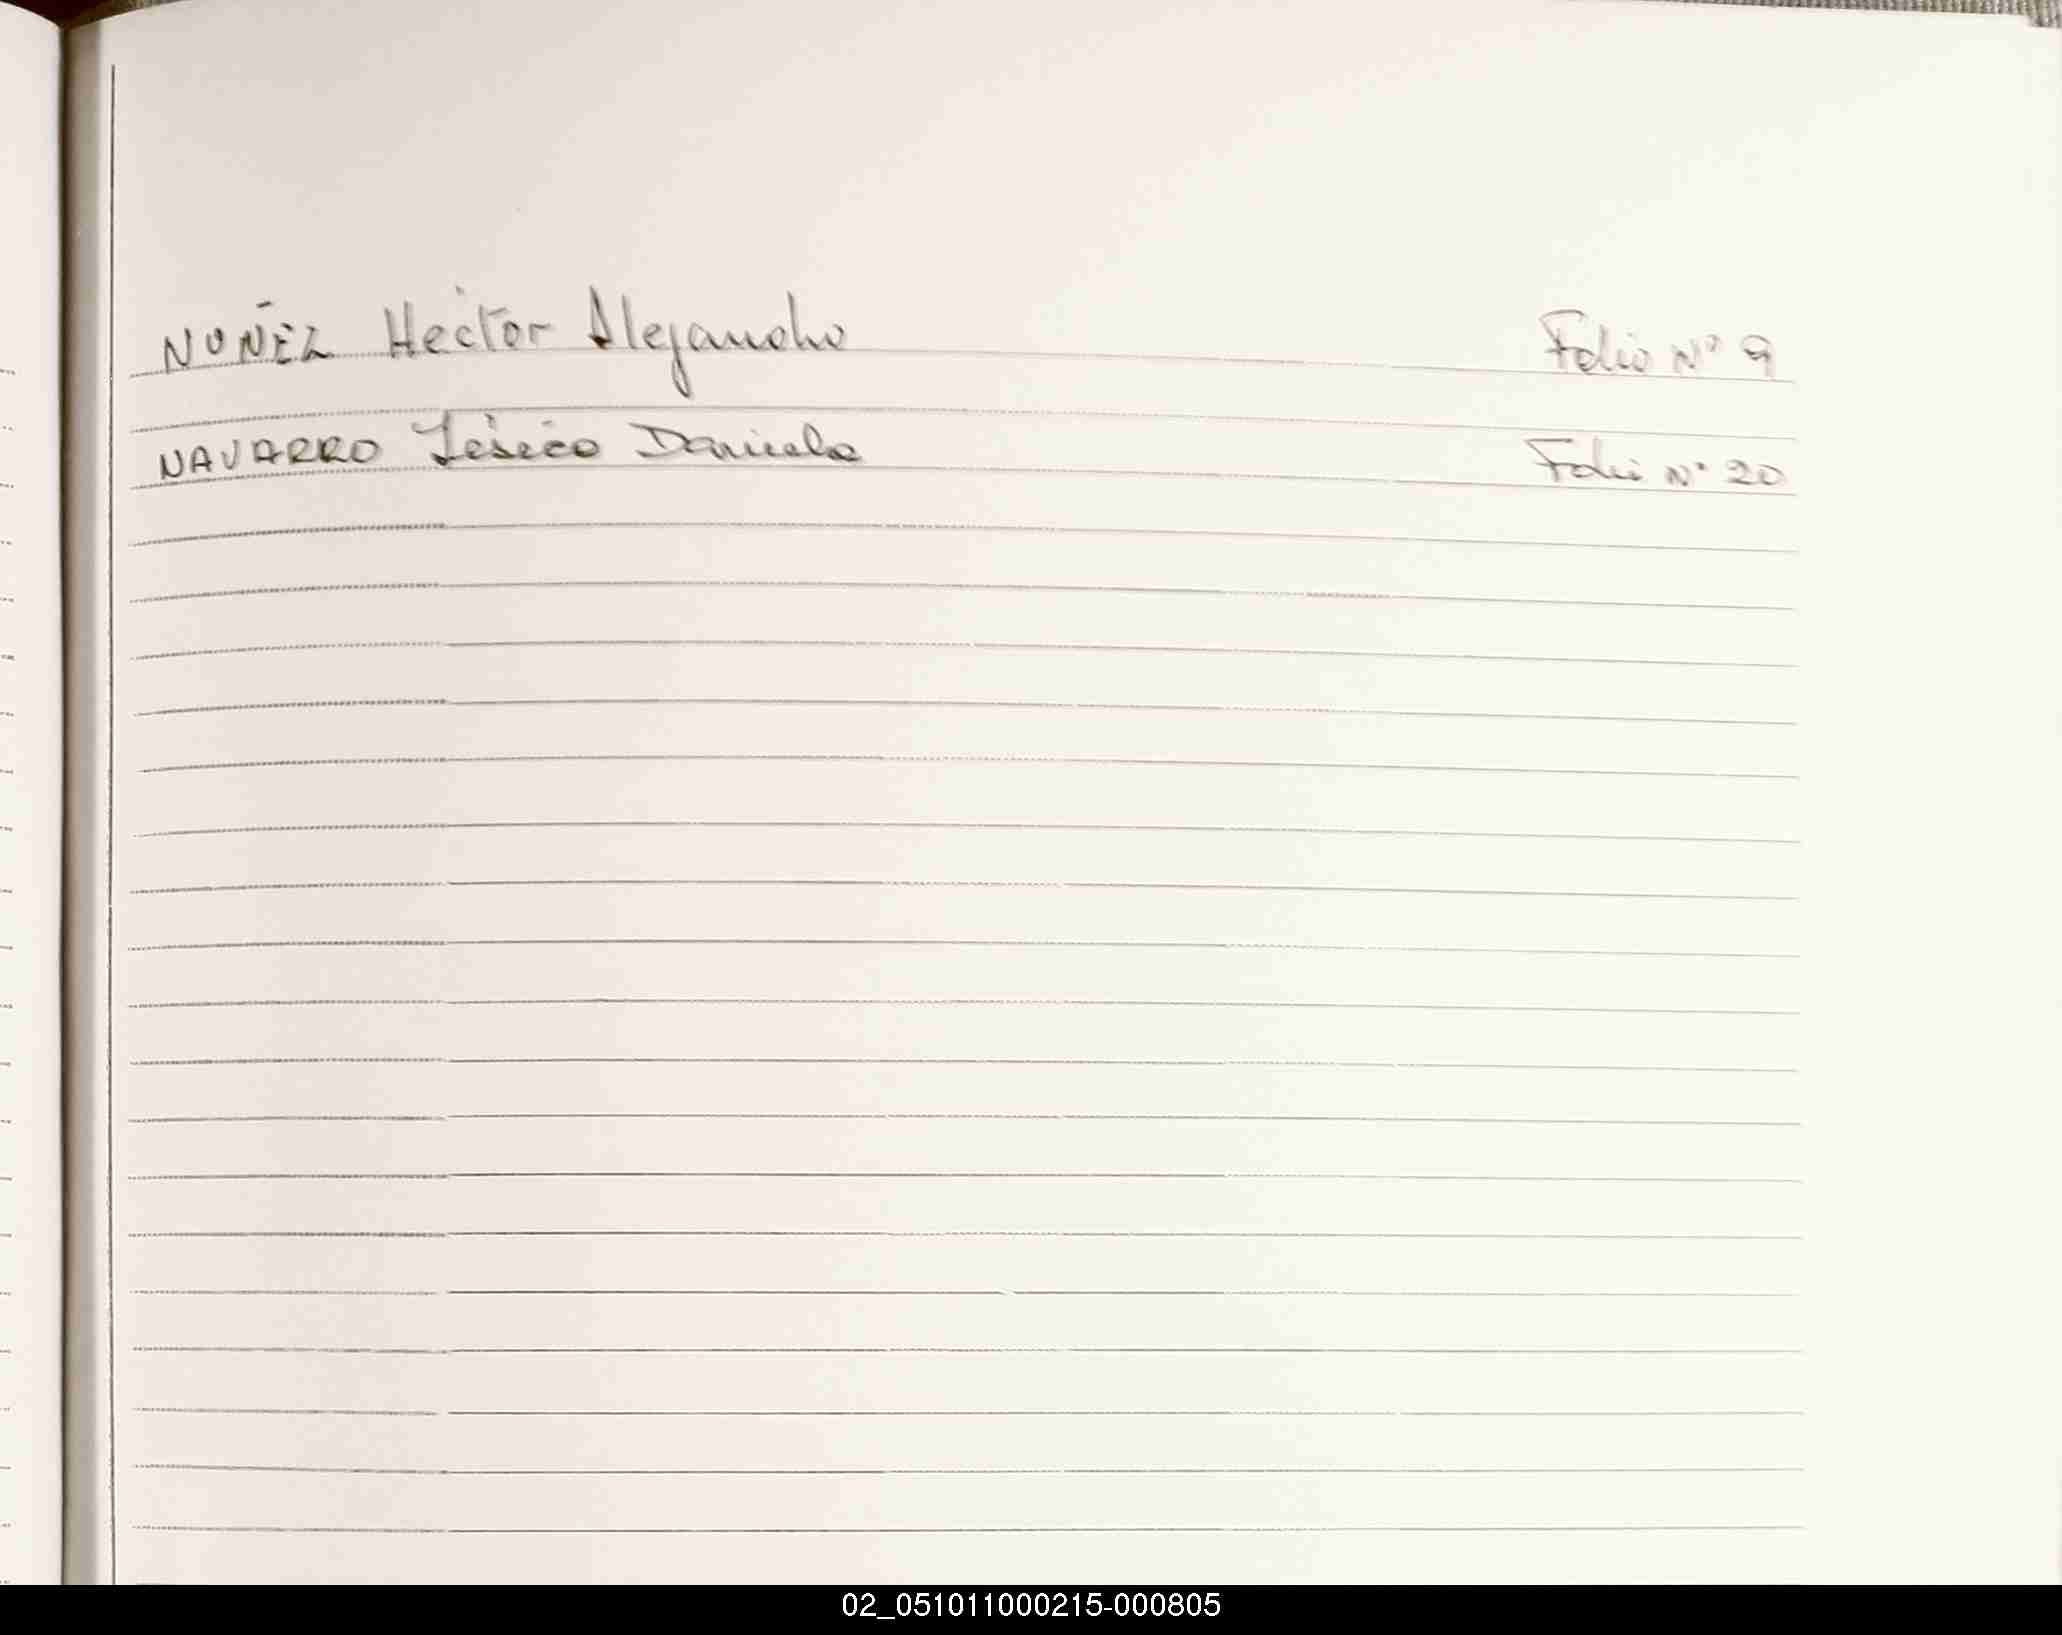 NUÑEZ Hector Alejandro Folio Nº 9
NAVARRO Jésica Daniela Folio Nº 20
02_051011000215-000805